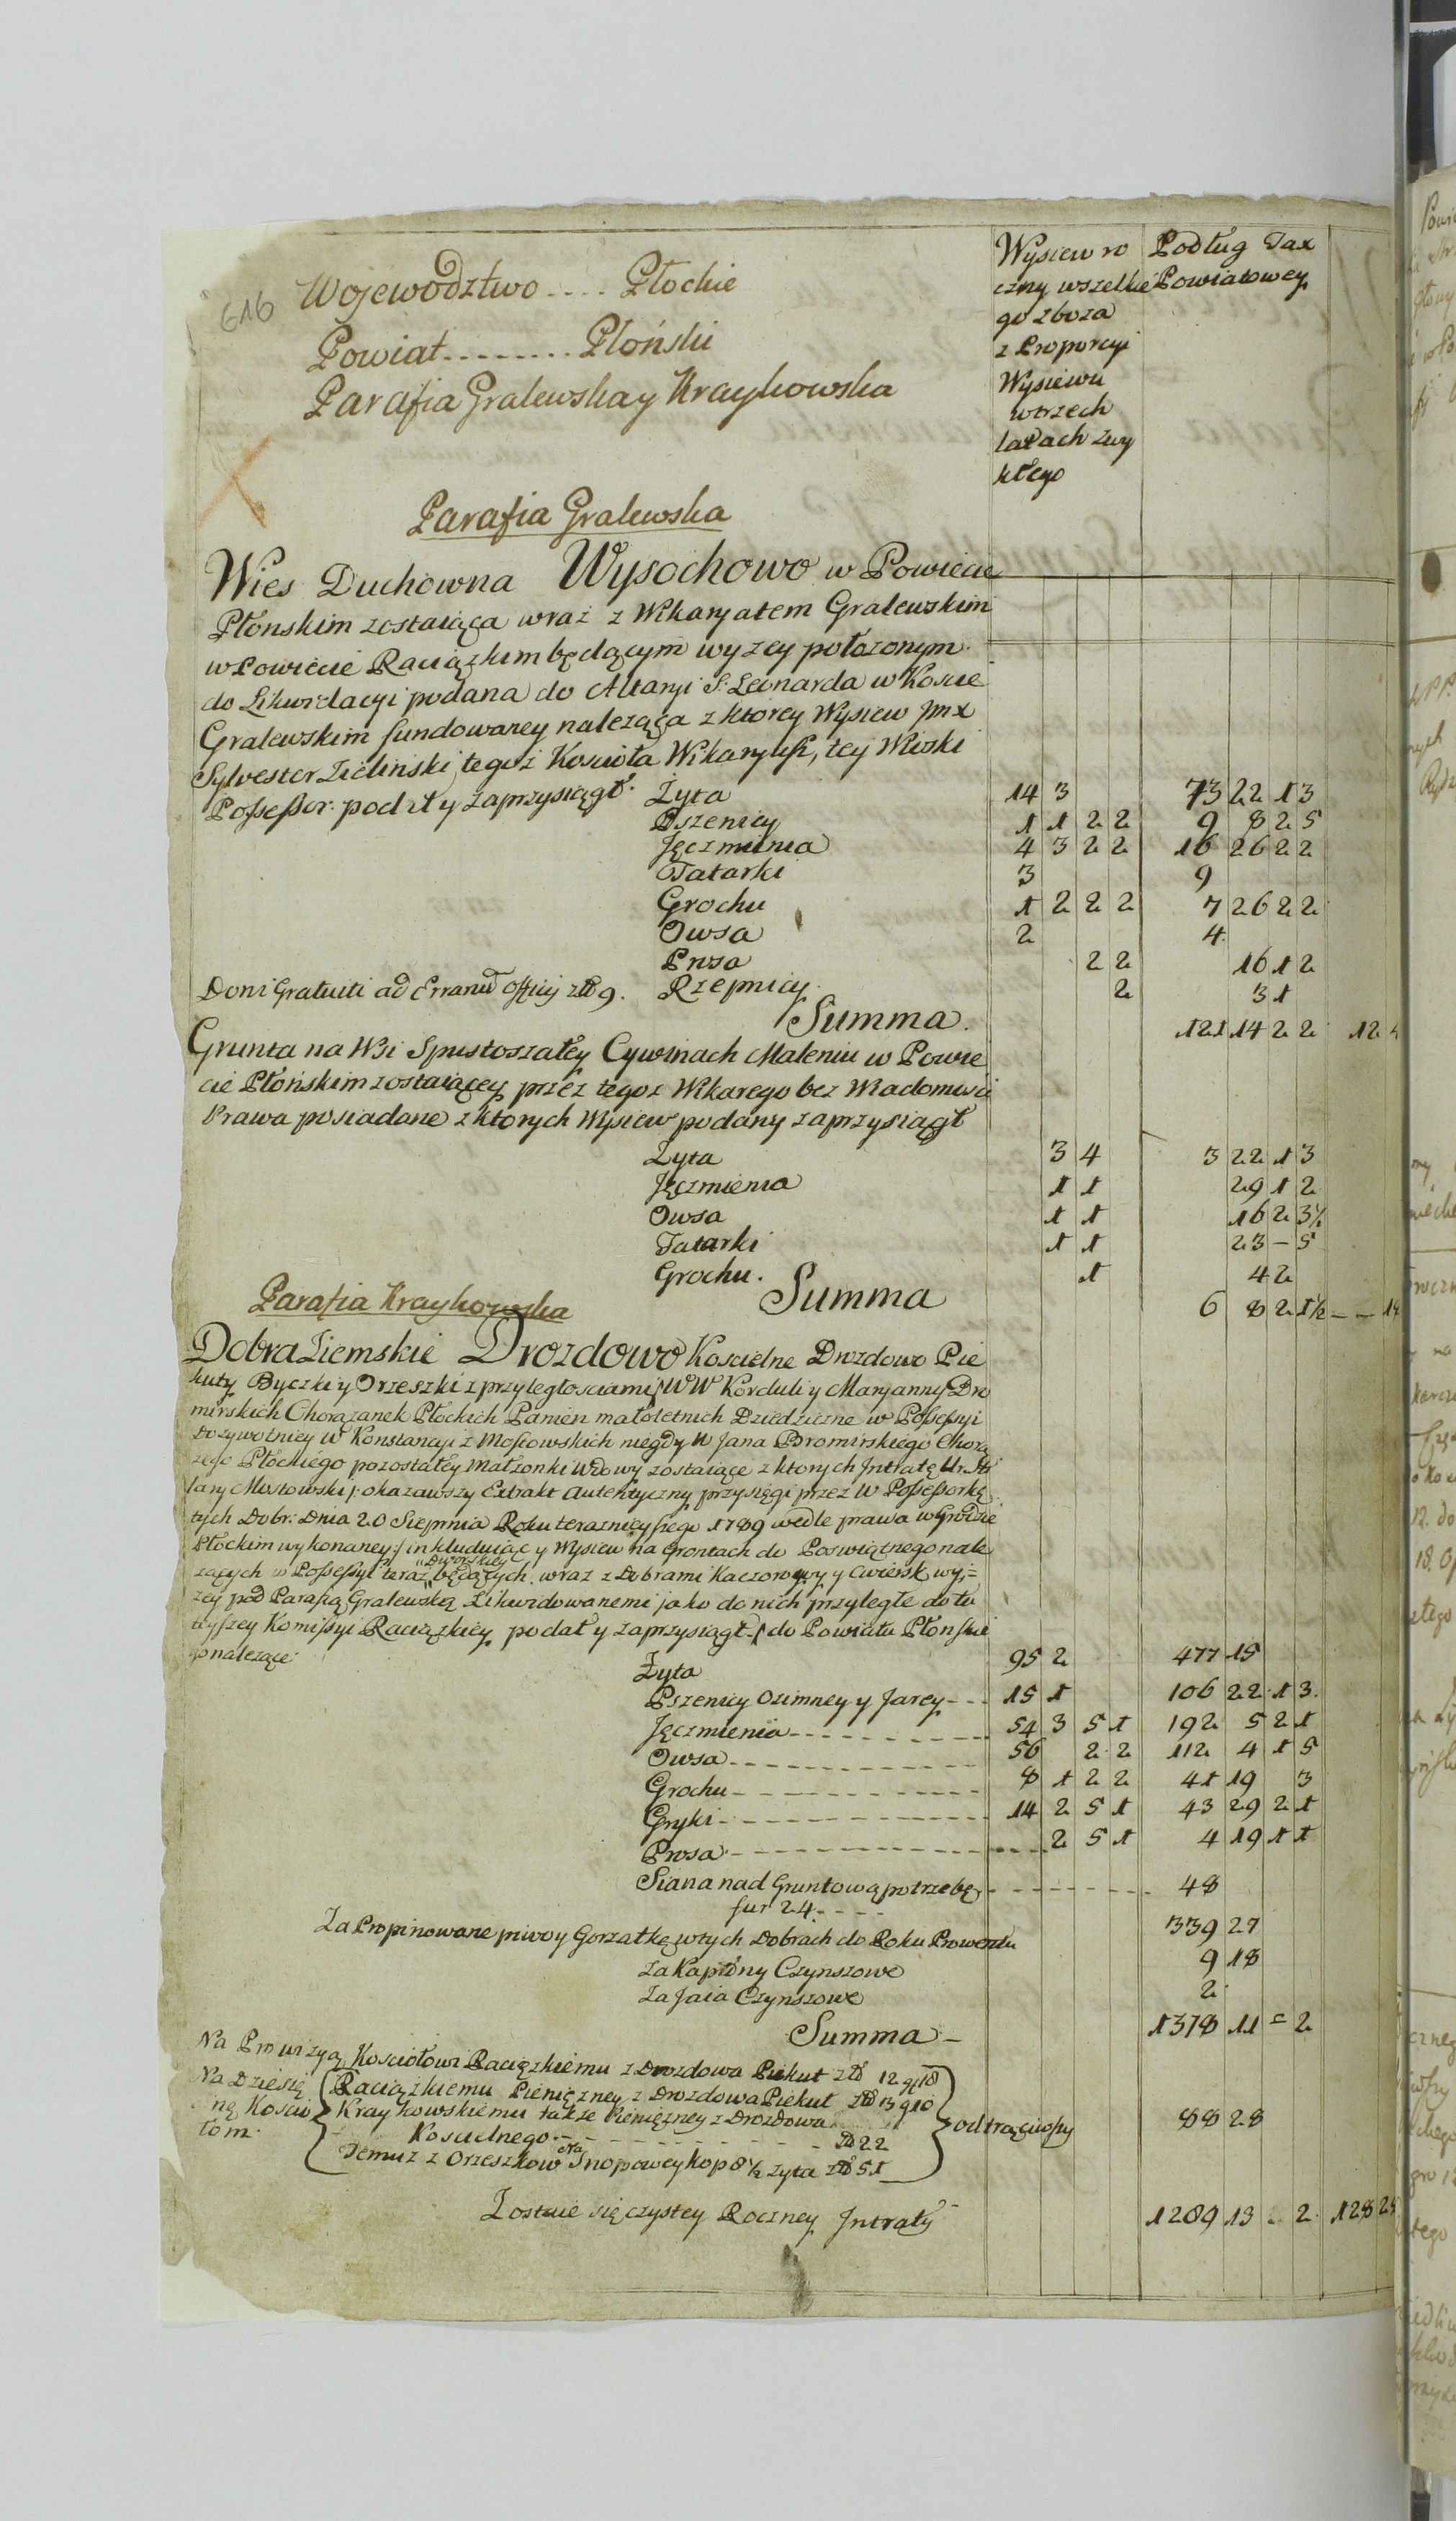 616
Wojewodztwo .... Płockie
Powiat ......... Płoński
Parafia Gralewska y Kraykowska
Wysiew ro
czny wszelkie
go zboza
z Proporcyi
Wysiewu
wtrzech
latach zwy
kłego
Podług Tax
Powiatowey
Parafia Gralewska
Wies Duchowna Wysochowo w Powiecie
Płonskim zostaiąca wraz z Wikaryatem Gralewskim
w Powiecie Raciązkim będącym wyzey połozonym
do Likwidacyi podana do Altaryi S: Leonarda w Koscie
Gralewskim fundowaney naleząca z ktorey Wysiew Jmx
Sylvester Zielinski tegoz Kościoła Wikaryusz, tey Wioski
Possessor: podał y zaprzysiągł. Zyta 14 3 73 22 1 3
Pszenicy 1 1 2 2 9 8 2 5
Jęczmienia 4 3 2 2 16 26 2 2
Tatarki 3 9
Grochu 1 2 2 2 7 26 2 2
Owsa 2 4
Prosa 2 2 16 1 2
Doni Gratuiti ad Errarium Officij zł 9. Rzepnicy 2 3 1
Summa. 121 14 2 2 12
Grunta na Wsi Spustoszałey Cywinach Maleniu w Powie
cie Płońskim zostaiącey przez tegoz Wikarego bez Wiadomosci
Prawa posiadane z ktorych Wysiew podany zaprzysiągł
Zyta 3 4 3 22 1 3
Jęczmienia 1 1 29 1 2
Owsa 1 1 16 2 3½
Tatarki 1 1 23 – 5
Grochu. 1 4 2
Summa 6 8 2 1½ – –
Parafia Kraykowska
Dobra Ziemskie Drozdowo Koscielne Drozdowo Pie
kuty Byczki y Orzeszki z przyległosciami WW Korduli y Maryanny Bro
mirskich Chorązanek Płockich Panien małoletnich Dziedziczne w Possessyi
Dozywotniey W Konstancyi z Mostowskich niegdy W Jana Bromirskiego Chorą
zego Płockiego pozostałey małzonki Wdowy zostaiące z ktorych Jntratę Ur. Hi
lary Mostowski /: okazawszy Extrakt Autentyczny przysięgi przez W Possessorkę
tych Dobr: Dnia 20 Sierpnia Roku teraznieyszego 1789 wedle prawa w Grodzie
Płockim wykonaney :/ inkluduiąc y Wysiew na Gruntach do Poswiątnego nale
zących w Possessyi teraz "Dworskiey będących. wraz z Dobrami Kaczorowy y Cwiersk wy=
zey pod Parafią Gralewską Likwidowanemi jako do nich przyległe do tu
teyszey Komissyi Raciązkiey podał y zaprzysiągł / do Powiatu Płonskie
go nalezące
Zyta 95 2 477 15
Pszenicy Ozimney y Jarey --- 15 1 106 22 1 3.
Jęczmienia --- 54 3 5 1 192 5 2 1
Owsa --- 56 2 2 112 4 1 5
Grochu --- 8 1 2 2 41 19 3
Gryki --- 14 2 5 1 43 29 2 1
Prosa --- 2 5 1 4 19 1 1
Siana nad Gruntową potrzebę --- 48
fur 24. ---
Za Propinowane piwo y Gorzałkę wtych Dobrach do Roku Prowentu 339 27
Za Kapłony Czynszowe 9 18
Za Jaia Czynszowe 2
Summa – 1378 11 = 2
Na Prowizyą Kosciołowi Raciązkiemu z Drozdowa Piekut zł 12 g 18
Na Dziesię Raciązkiemu Pieniężney z Drozdowa Piekut zł 13 g 10
nę Koscio Kraykowskiemu także Pieniężney z Drozdowa
łom. Koscielnego --- zł 22
Temuz z Orzeszkow Na Snopowey kop 8½ zyta zł 51
odtrąciwszy 88 28
Zostaie się czystey Roczney Jntraty 1289 13 – 2. 128 28